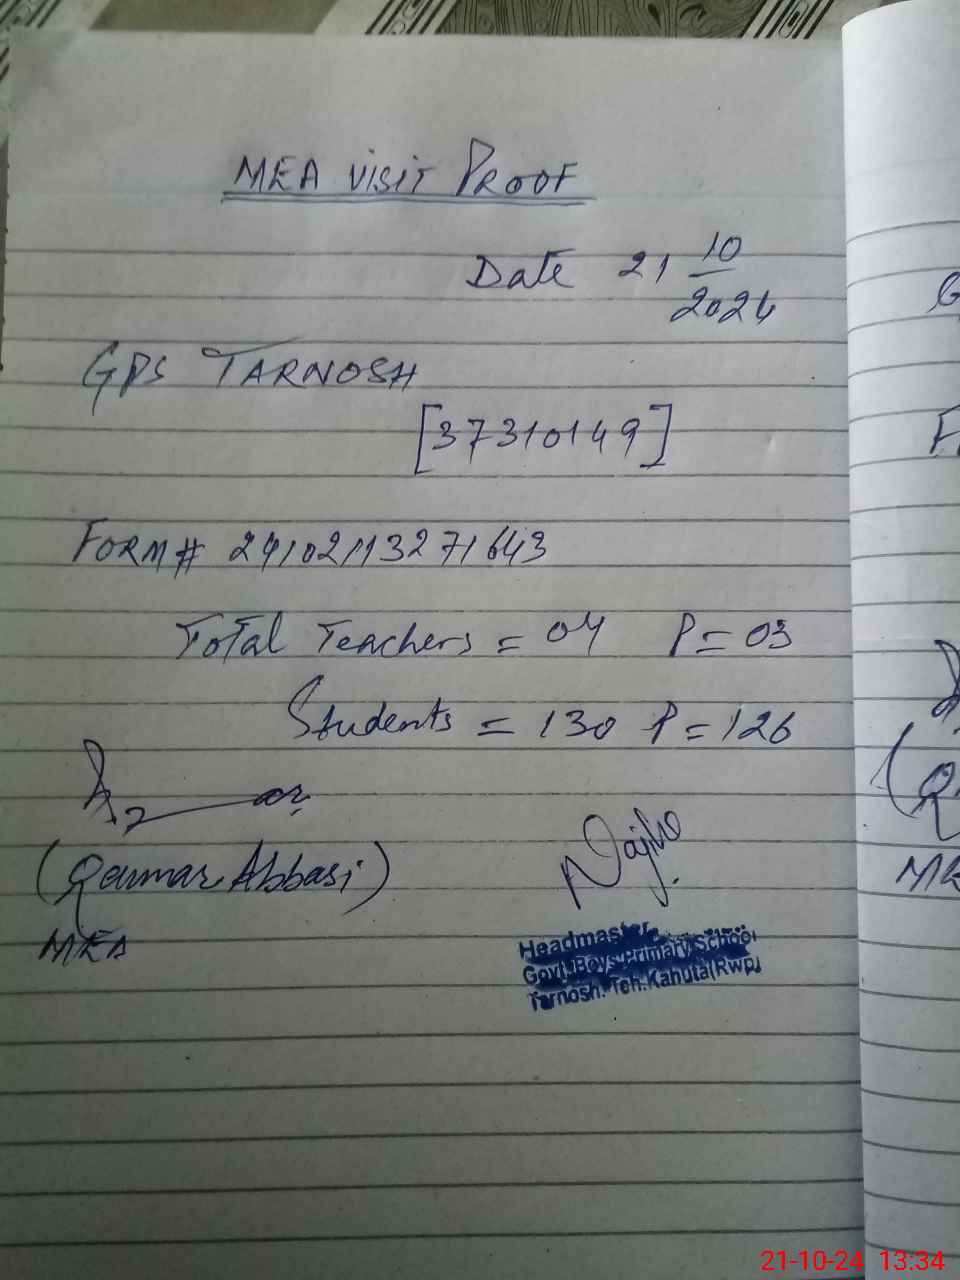 MEA VISIT PROOF
Date 21 10/2024
GPS TARNOSH
[37310149]
FORM# 24102113271643
Total Teachers = 04 P = 03
Students = 130 P = 126
(Qammar Abbasi)
MEA
Headmaster
Govt. Boys Primary School
Tarnosh. Teh. Kahuta(Rwp)
21-10-24 13:34